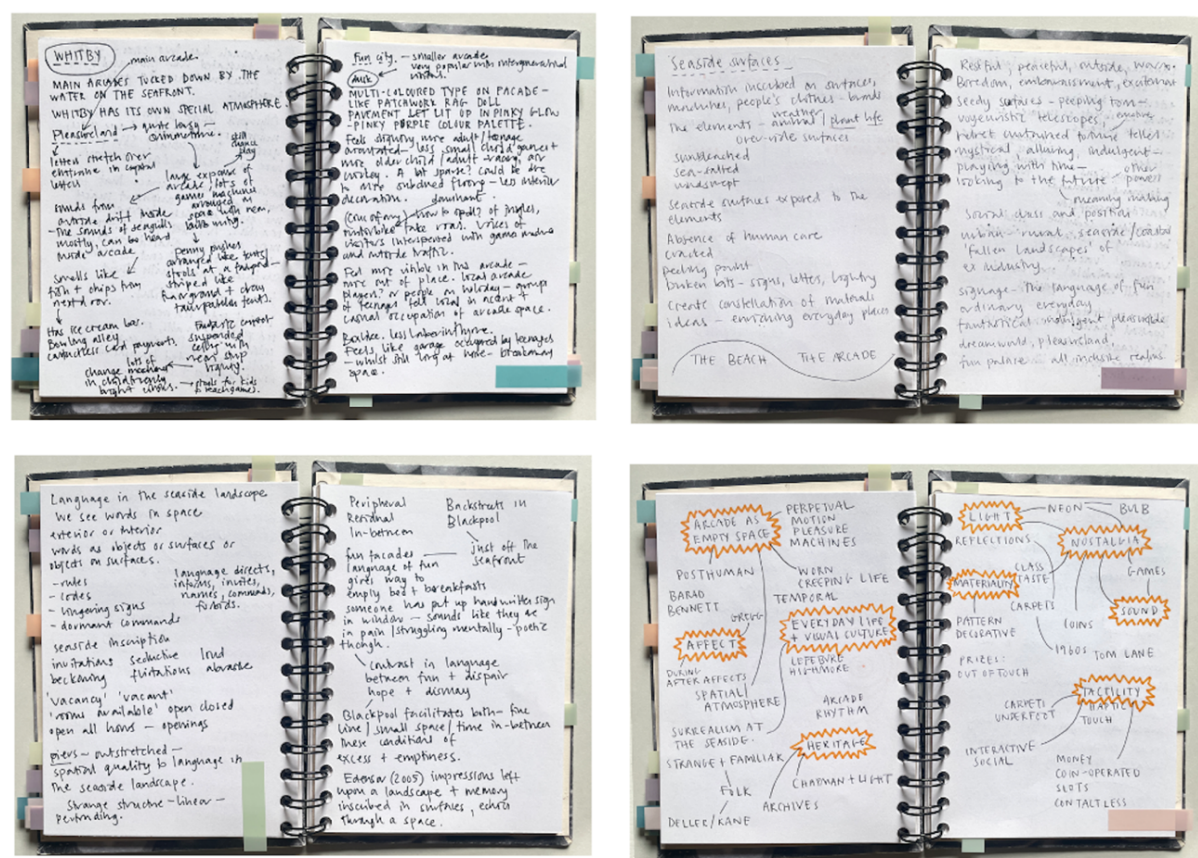 WHITBY
main arcade.
MAIN ARCADES TUCKED DOWN BY THE
WATER ON THE SEAFRONT.
WHITBY HAS ITS OWN SPECIAL ATMOSPHERE.
Pleasureland → quite large –
letters stretch over
entrance in capital
letters
still
chance
play
large expanse of
arcade / lots of
games machines
arranged in
space with new,
sounds from
outside drift inside
– the sounds of seagulls
mostly, can be heard
inside arcade
smells like
fish + chips from
next door.
Penny pushers
arranged like tents/
stools at a fairground –
striped like
fairground + clown
tents.
Has ice cream bar.
Bowling alley
contactless card payments.
Fantastic
suspended
ceiling with
neon strip
lighting.
lots of
change machines
in
bright colours.
stools for kids
Fun city. – smaller arcade,
very popular with intergenerational
dusk
MULTI-COLOURED TYPE ON FACADE –
LIKE PATCHWORK RAG DOLL
PAVEMENT LET LIT UP IN PINKY GLOW
– PINKY PURPLE COLOUR PALETTE.
Feels slightly more adult / teenage
orientated – less small child games +
more older child / adult – racing, air
hockey. A bit sparse? Could be due
to more subdued flooring – less interior
decoration.
dominant.
how to spell? of jingles,
fake roars. Voices of
visitors interspersed with game audio
and outside traffic.
Feel more visible in this arcade –
more out of place. local arcade
players? or people on holiday – groups
of teenagers felt local in accent +
casual occupation of arcade space.
Boxlike, less labyrinthine.
Feels like garage occupied by teenagers
– whilst still
space.
Seaside surfaces
Information inscribed on surfaces,
machines, people's clothes – bands
The elements – weather / plant life
animal
over-ride surfaces
sunbleached
sea-salted
windswept
Seaside surfaces exposed to the
elements
Absence of human care
coasted
peeling paint
broken bits – signs, letters, lighting
Create constellation of materials
ideas – enriching everyday places
THE BEACH THE ARCADE
Restful, peaceful, outside, warm.
Boredom, embarrassment, excitement
seedy surfaces – peeping tom –
voyeuristic telescopes,
fortune teller
mystical, alluring, indulgent –
playing with time – other
looking to the future powers
meaning making
Social class and position
urban – rural seaside / coastal
'Fallen Landscapes' of
ex industry.
signage – the language of fun
ordinary everyday
fantastical pleasurable
dreamworld, pleasureland,
fun palace – all inclusive realms.
Language in the seaside landscape
We see words in space
exterior or interior
words as objects or surfaces or
objects on surfaces.
– rules
– codes
– lingering signs
– dormant commands
language directs,
informs, invites,
names, commands,
forbids.
seaside inscription
invitations seductive loud
beckoning flirtations abrasive
'vacancy' 'vacant'
'rooms available' open closed
open all hours – openings
piers – outstretched –
spatial quality to language in
the seaside landscape.
Strange structure – linear –
protruding.
Peripheral
Residual
In-between
Backstreets in
Blackpool
just off the
seafront
fun facades
language of fun
gives way to
empty bed + breakfasts
someone has put up handwritten sign
in window – sounds like they are
in pain / struggling mentally – poetic
though.
contrast in language
between fun + despair
hope + dismay
Blackpool facilitates both – fine
line / small space / time in-between
these conditions of
excess + emptiness.
Edensor (2005) impressions left
upon a landscape + memory
inscribed in surfaces, echoes
through a space.
ARCADE AS
EMPTY SPACE
PERPETUAL
MOTION
PLEASURE
MACHINES
POSTHUMAN
BARAD
BENNETT
WORN
CREEPING LIFE
TEMPORAL
GREGG
AFFECT
EVERYDAY LIFE
+ VISUAL CULTURE
LEFEBVRE
HIGHMORE
DURING
AFTER AFFECTS
SPATIAL/
ATMOSPHERE
ARCADE
RHYTHM
SURREALISM AT
THE SEASIDE.
HERITAGE
STRANGE + FAMILIAR
FOLK
CHAPMAN + LIGHT
ARCHIVES
DELLER/KANE
LIGHT
NEON
BULB
REFLECTIONS
NOSTALGIA
CLASS
TASTE
GAMES
MATERIALITY
CARPETS
SOUND
PATTERN
DECORATIVE
COINS
1960s
TOM LANE
PRIZES:
OUT OF TOUCH
TACTILITY
HAPTIC
TOUCH
CARPETS
UNDERFOOT
INTERACTIVE
SOCIAL
MONEY
COIN-OPERATED
SLOTS
CONTACTLESS